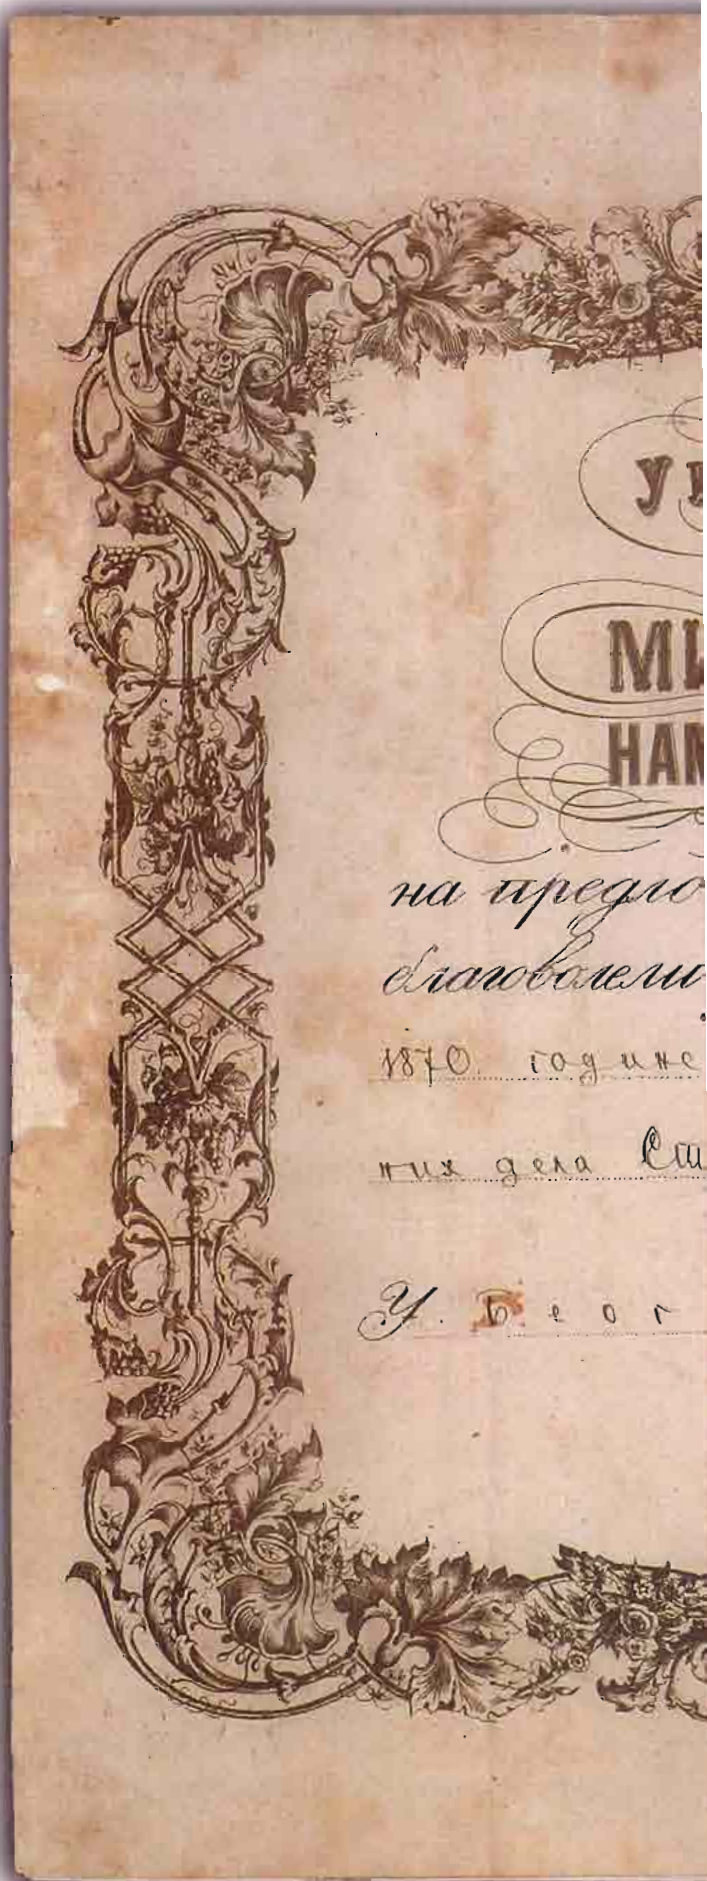 У
МИ
НАМ
на предло
благоволели
1870. године
них дела Ст
У. Беог